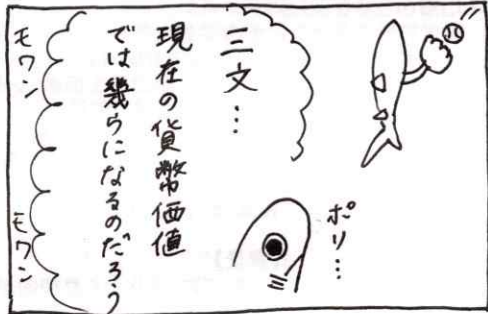 ポリ…
三文…
現在の貨幣価値
では幾らになるのだろう
モワン
モワン